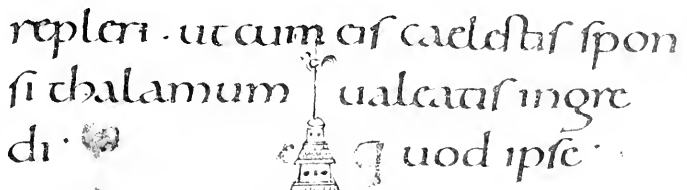 repleri . ut cum eis caelestis spon
si thalamum ualeatis ingre
di . quod ipse .